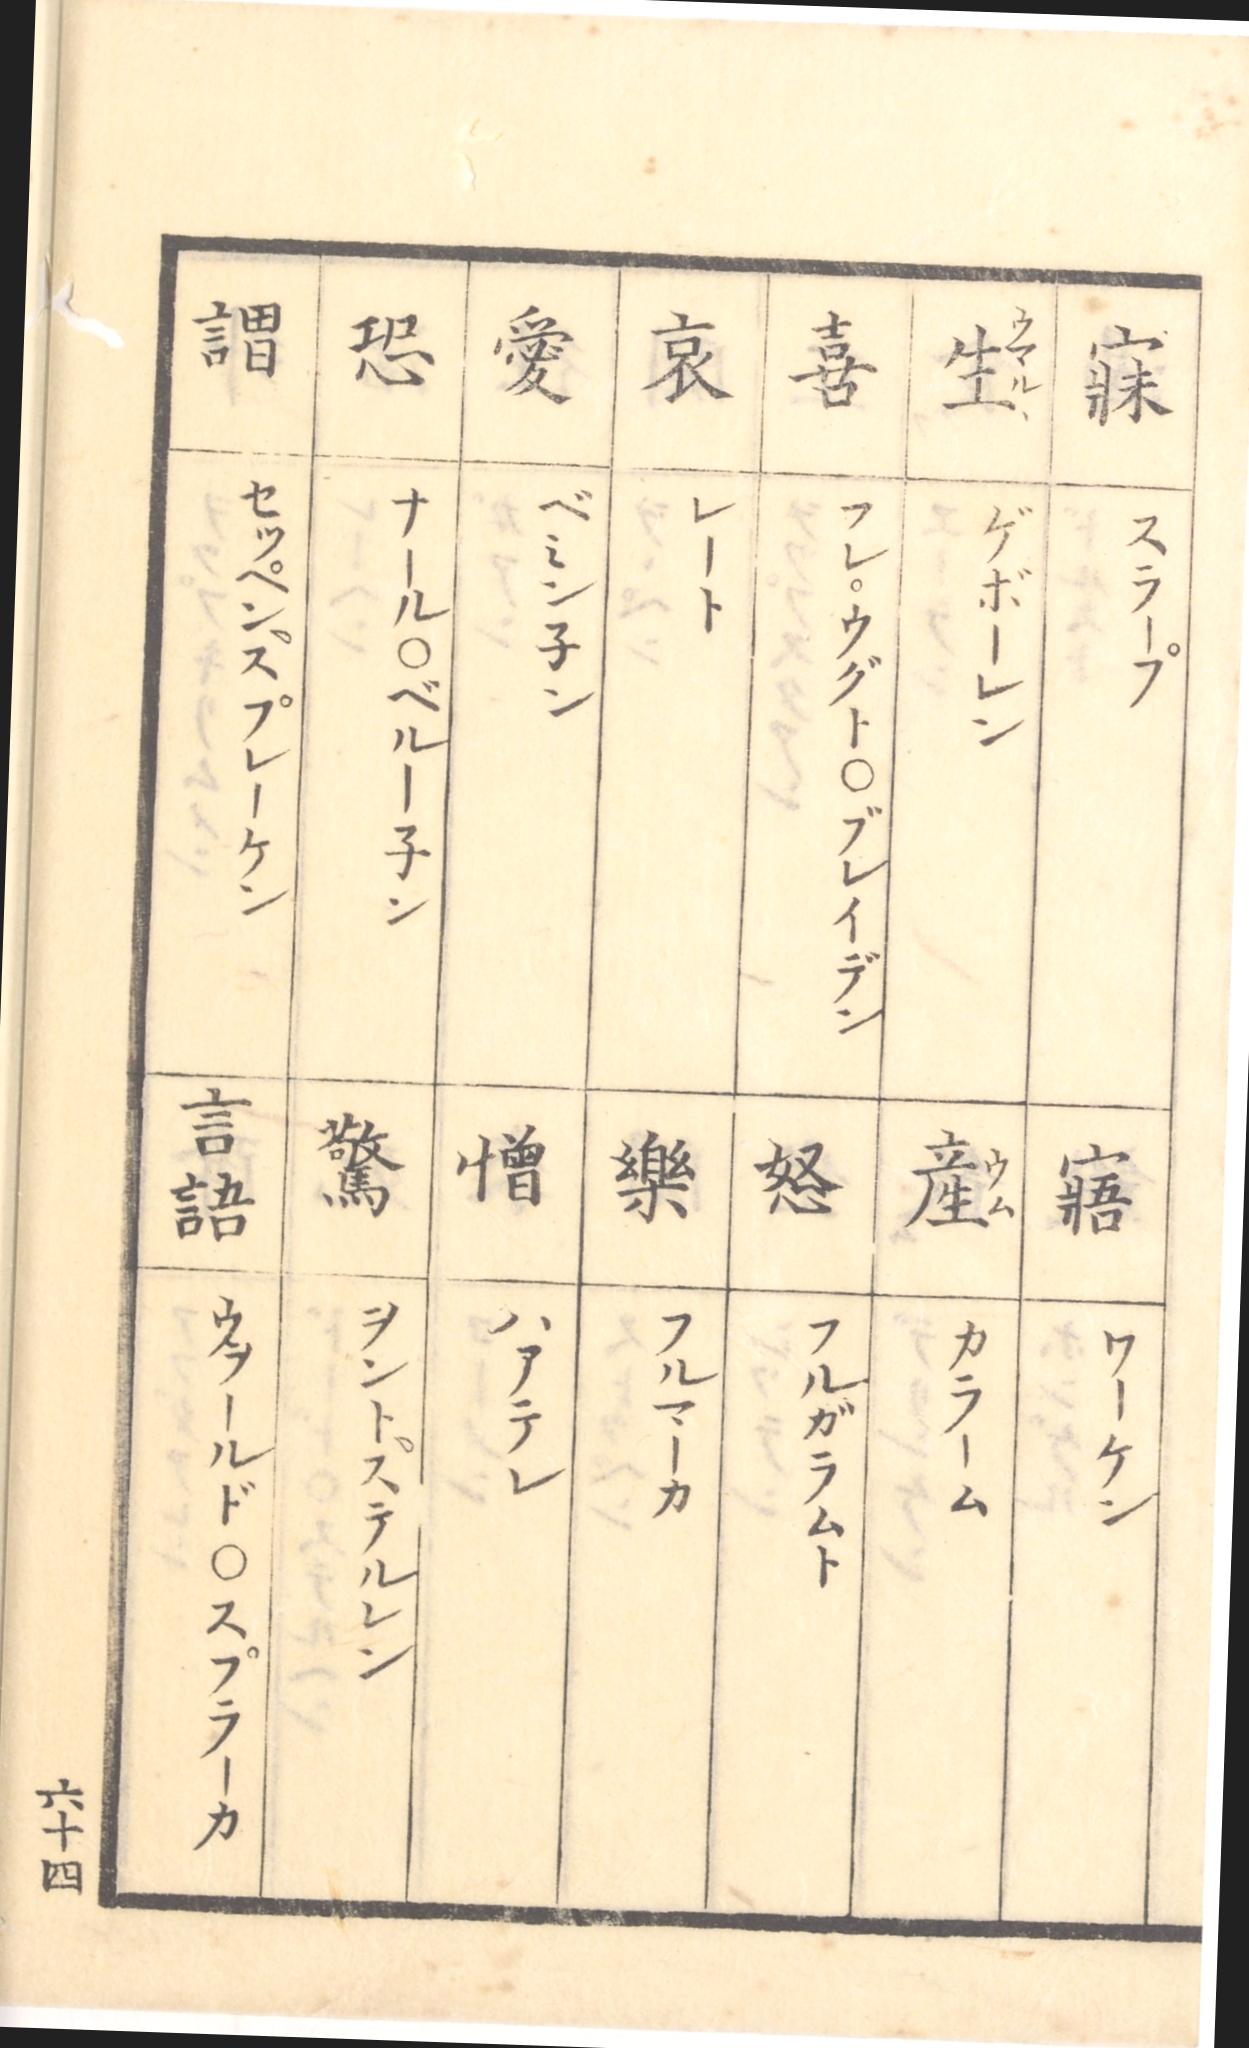 寐
スラープ
生 ウマルヽ
ゲボーレン
喜
フレ。ウグト〇ブレイデン
哀
レート
愛
ベミン子ン
恐
ナール〇ベルー子ン
謂
セッペンス゜プレーケン
寤
ワーケン
産 ウム
カラーム
怒
フルガラムト
樂
フルマーカ
憎
ハアテレ
驚
ヲントス゜テルレン
言語
ウヲールド〇スプラーカ
六十四